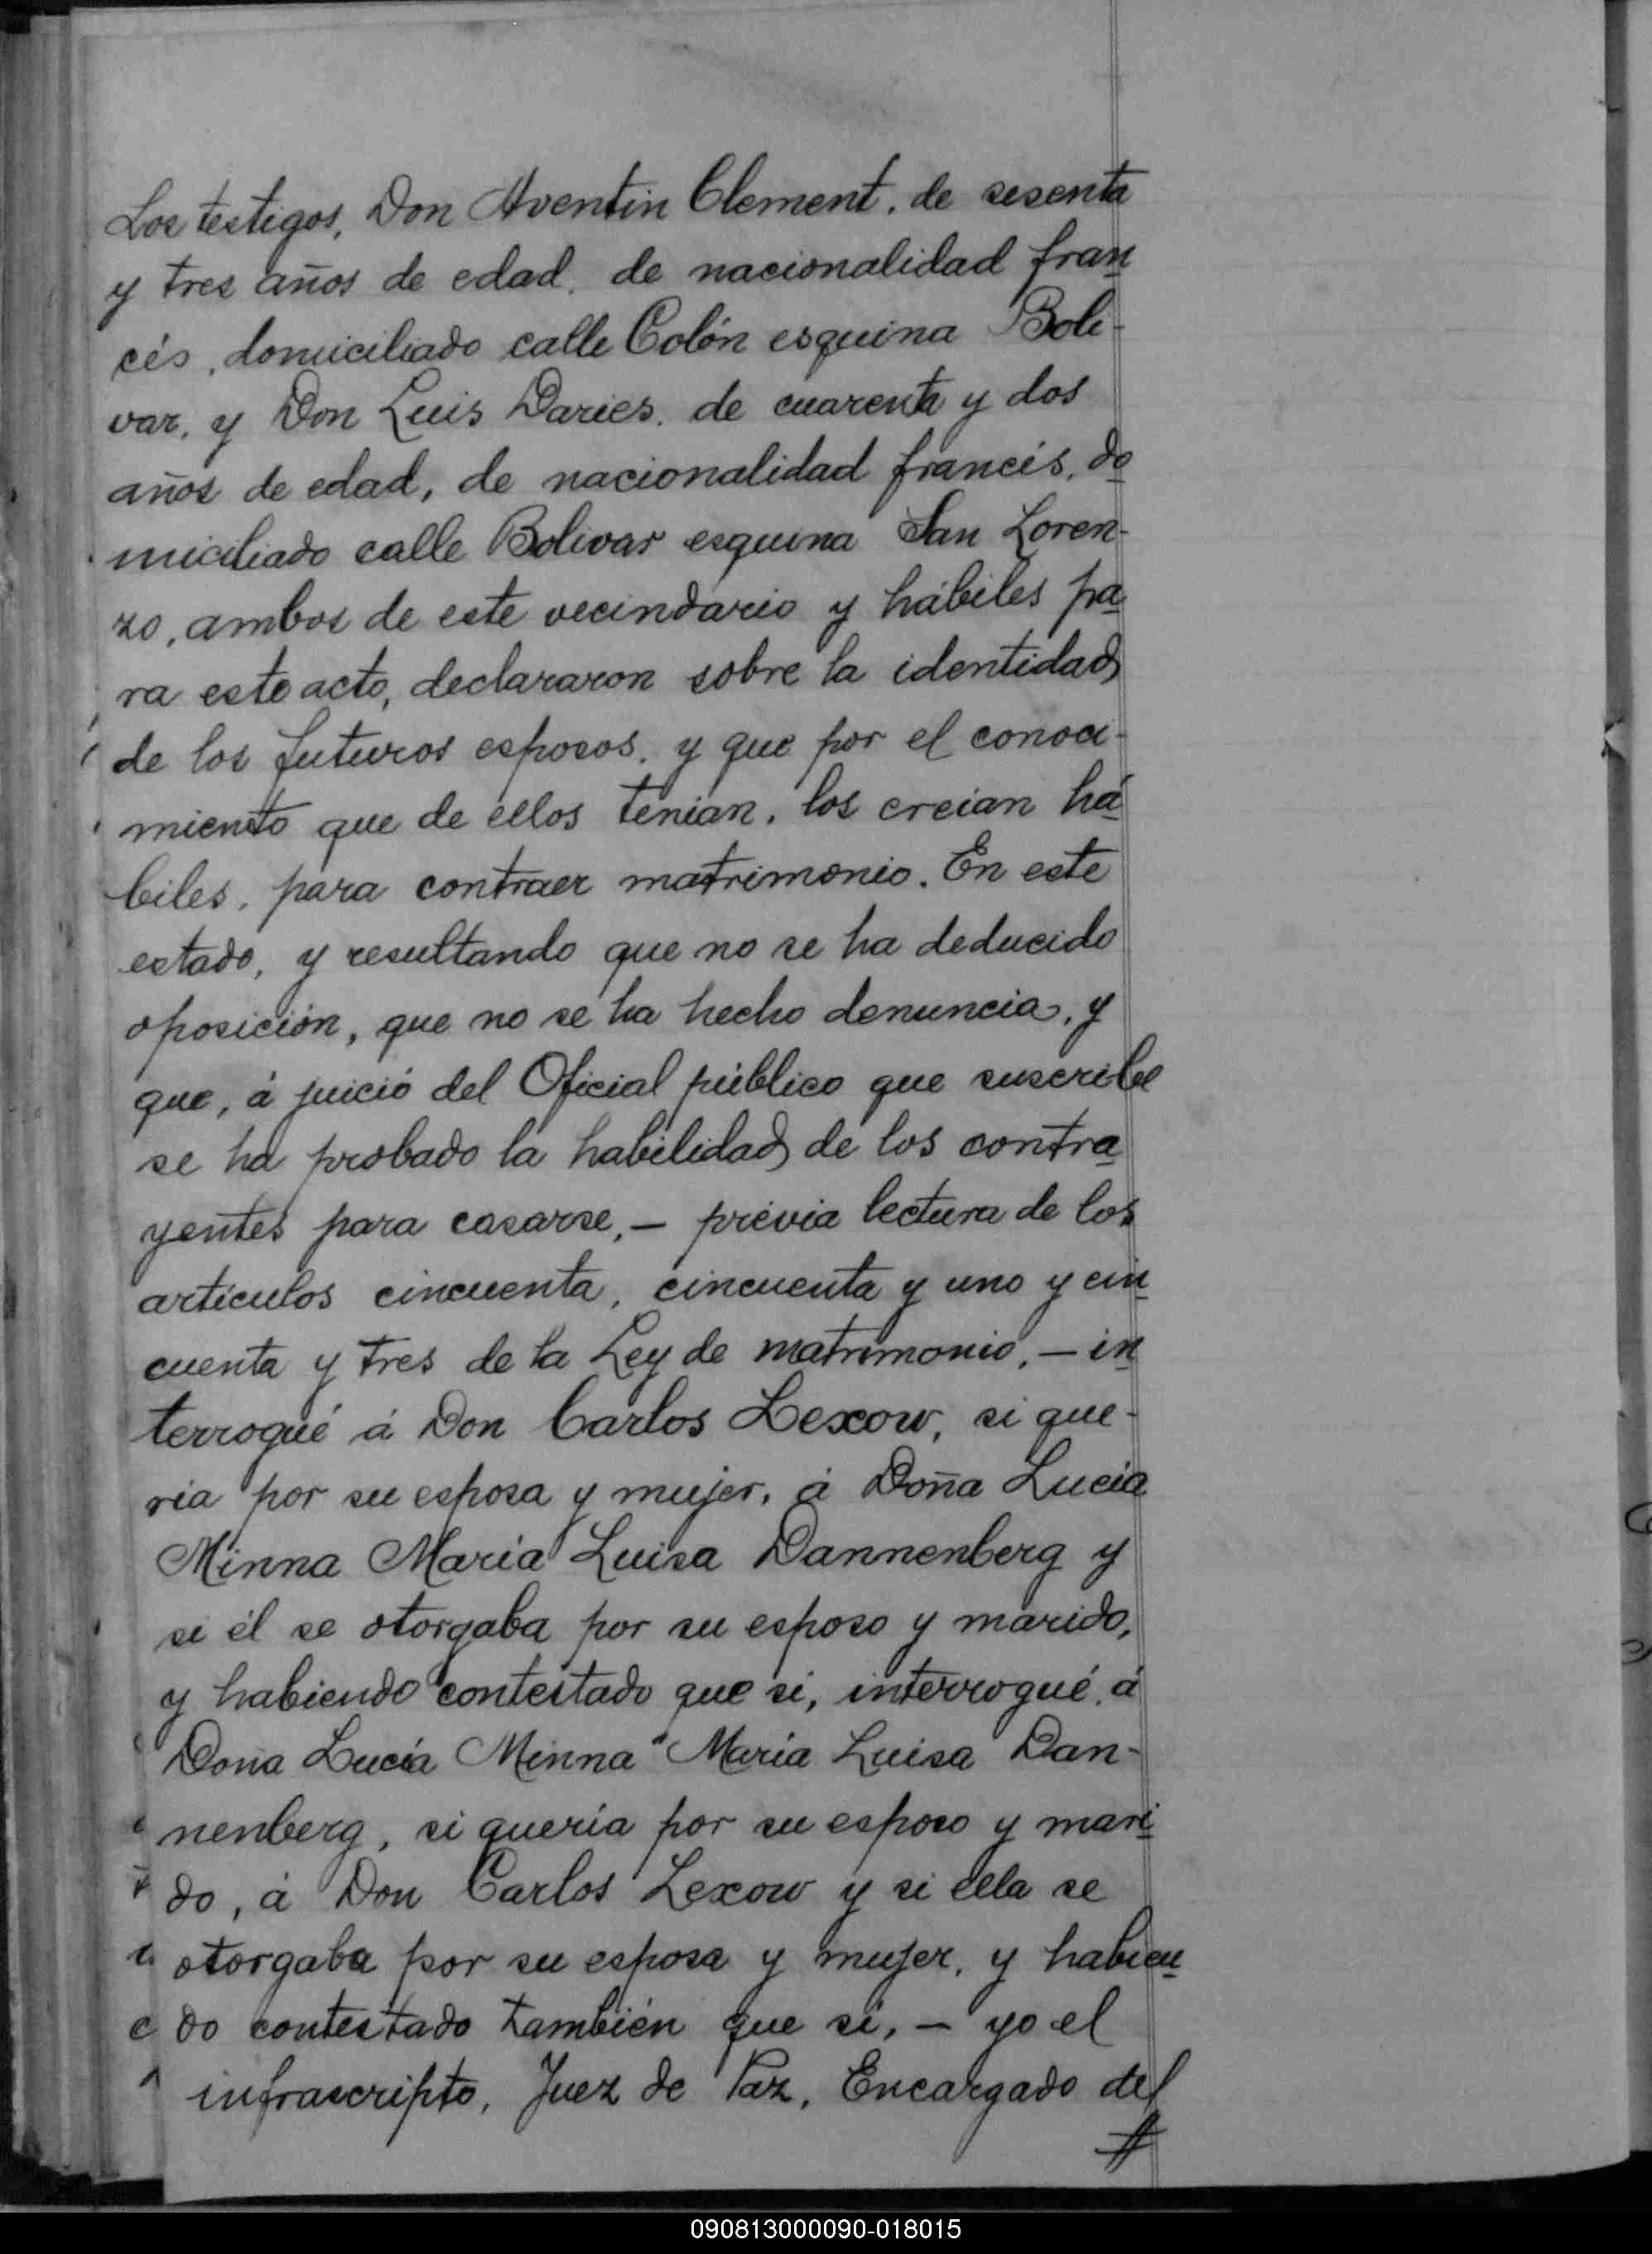 Los testigos, Don Aventin Clement, de sesenta
y tres años de edad, de nacionalidad fran
cés, domiciliado calle Colón esquina Boli-
var, y Don Luis Daries, de cuarenta y dos
años de edad, de nacionalidad francés, do
miciliado calle Bolivar esquina San Loren-
zo, ambos de este vecindario y hábiles pa
ra este acto, declararon sobre la identidad
de los futuros esposos, y que por el conoci-
miento que de ellos tenian, los creian há
biles, para contraer matrimonio. En este
estado, y resultando que no se ha deducido
oposición, que no se ha hecho denuncia, y
que, á juicio del Oficial público que suscribe
se ha probado la habilidad de los contra
yentes para casarse, — prévia lectura de los
artículos cincuenta, cincuenta y uno y cin
cuenta y tres de la Ley de matrimonio, — in
terrogué á Don Carlos Lexow, si que-
ria por su esposa y mujer, á Doña Lucia
Minna Maria Luisa Dannenberg y
si él se otorgaba por su esposo y marido,
y habiendo contestado que si, interrogué, á
Doña Lucía Minna Maria Luisa Dan-
nenberg, si quería por su esposo y mari
do, á Don Carlos Lexow y si ella se
otorgaba por su esposa y mujer, y habien
do contestado también que si, — yo el
infrascripto, Juez de Paz, Encargado del
090813000090-018015